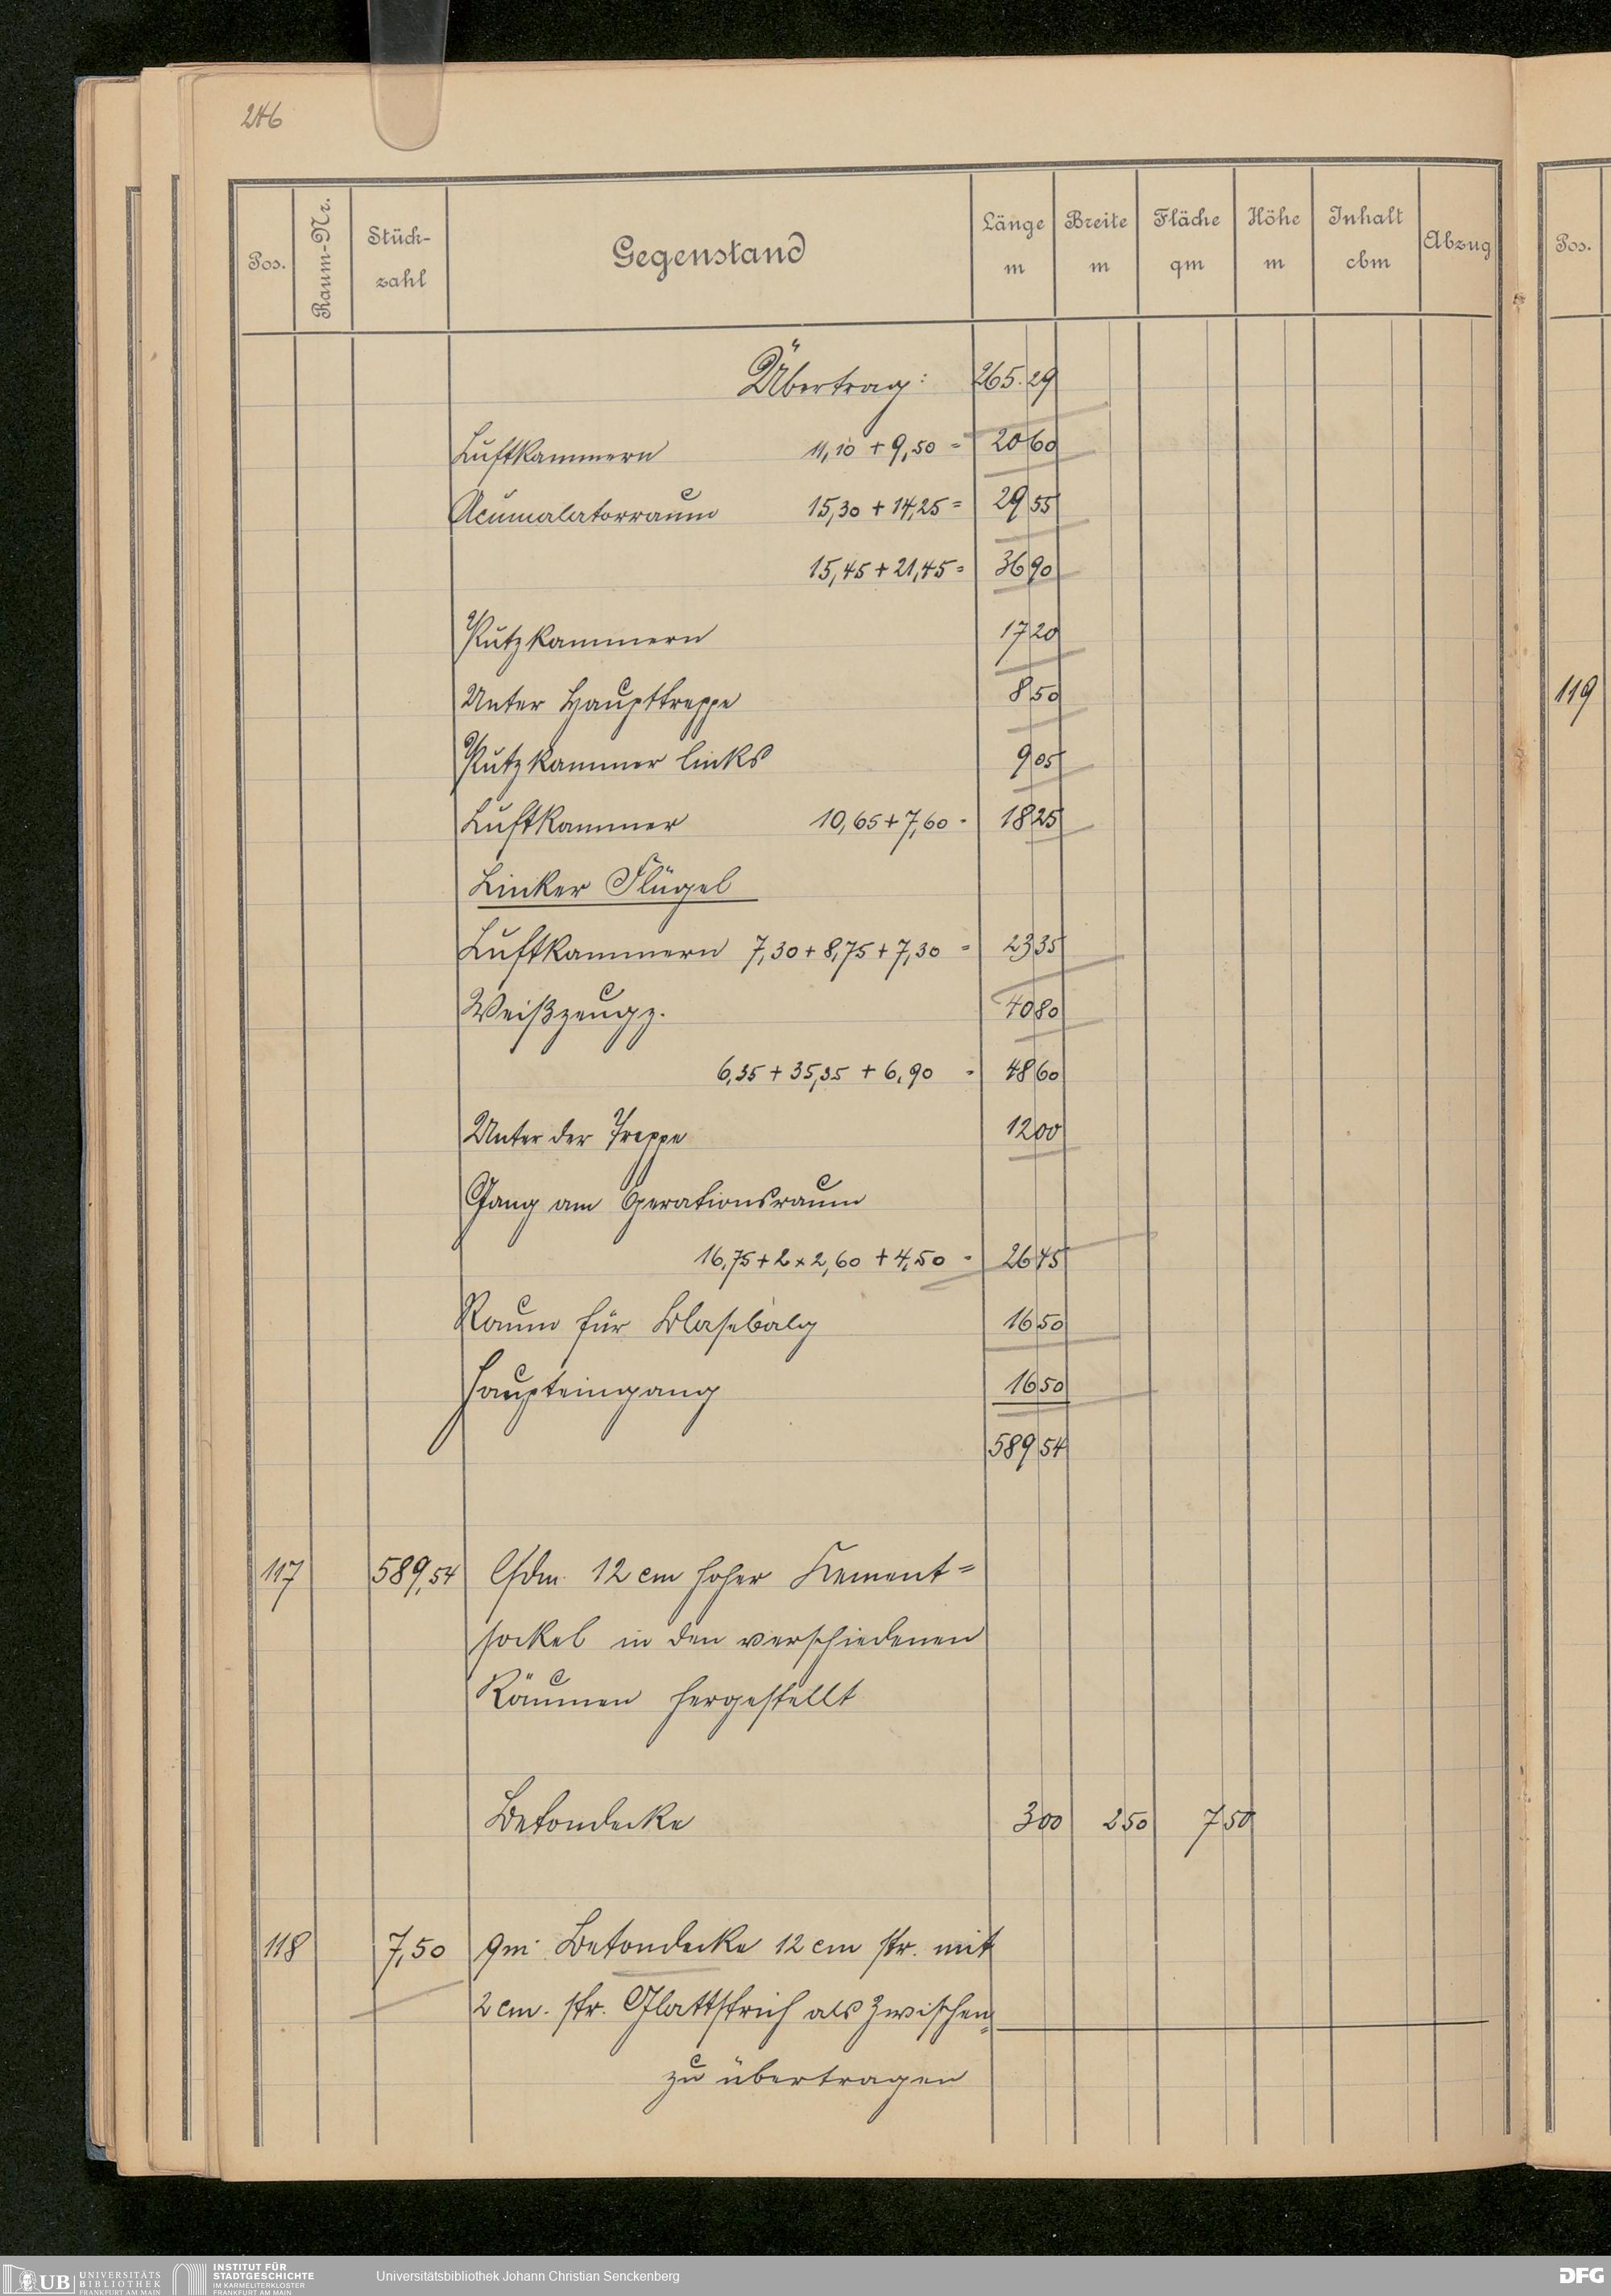 246
Pos. Raum-Nr. Stück-zahl Gegenstand Länge m Breite m Fläche qm Höhe m Inhalt cbm Abzug Pos.
Übertrag: 265.29
Luftkammern 11,10 + 9,50 = 20 60
Acumalatorraum 15,30 + 14,25 = 29 55
15,45 + 21,45 = 36 90
Putzkammern 17 20
Unter Haupttreppe 8 50
119
Putzkammer links 9 05
Luftkammer 10,65 + 7,60 = 18 25
Linker Flügel
Luftkammern 7,30 + 8,75 + 7,30 = 23 35
Weißzeugz. 40 80
6,35 + 35,35 + 6,90 = 48 60
Unter der Treppe 12 00
Gang am Operationsraum
16,75 + 2 x 2,60 + 4,50 = 26 45
Raum für Blasebalg 16 50
Haupteingang 16 50
589 54
117 589,54 lfdm. 12 cm hoher Zement=
sockel in den verschiedenen
Räumen hergestellt
Betondecke 3 00 2 50 7 50
118 7,50 qm. Betondecke 12 cm str. mit
2 cm. str. Glattstrich als Zwischen=
zu übertragen
UB UNIVERSITÄTS
BIBLIOTHEK
FRANKFURT AM MAIN
INSTITUT FÜR
STADTGESCHICHTE
IM KARMELITERKLOSTER
FRANKFURT AM MAIN
Universitätsbibliothek Johann Christian Senckenberg
DFG